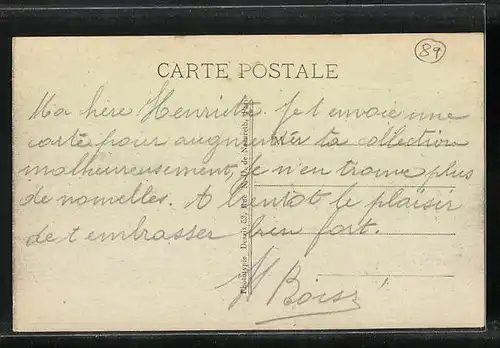 89
CARTE POSTALE
Ma chère Henriette Je t envoie une
carte pour augmenter ta collection
M
malheureusement, Je n'en trouve plus
de nouvelles. A bientôt le plaisir
de t embrasser bien fort.
Phototypie Desaix 53, Rue N.-D. de Nazareth, Paris